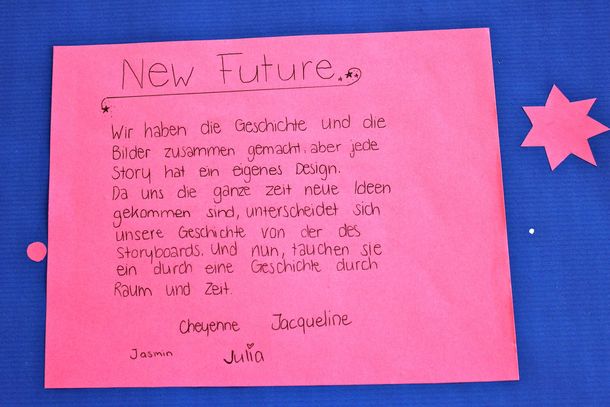 New Future
Wir haben die Geschichte und die
Bilder zusammen gemacht, aber jede
Story hat ein eigenes Design.
Da uns die ganze zeit neue Ideen
gekommen sind, unterscheidet sich
unsere Geschichte von der des
Storyboards. Und nun, tauchen sie
ein durch eine Geschichte durch
Raum und Zeit.
Cheyenne Jacqueline
Jasmin Julia